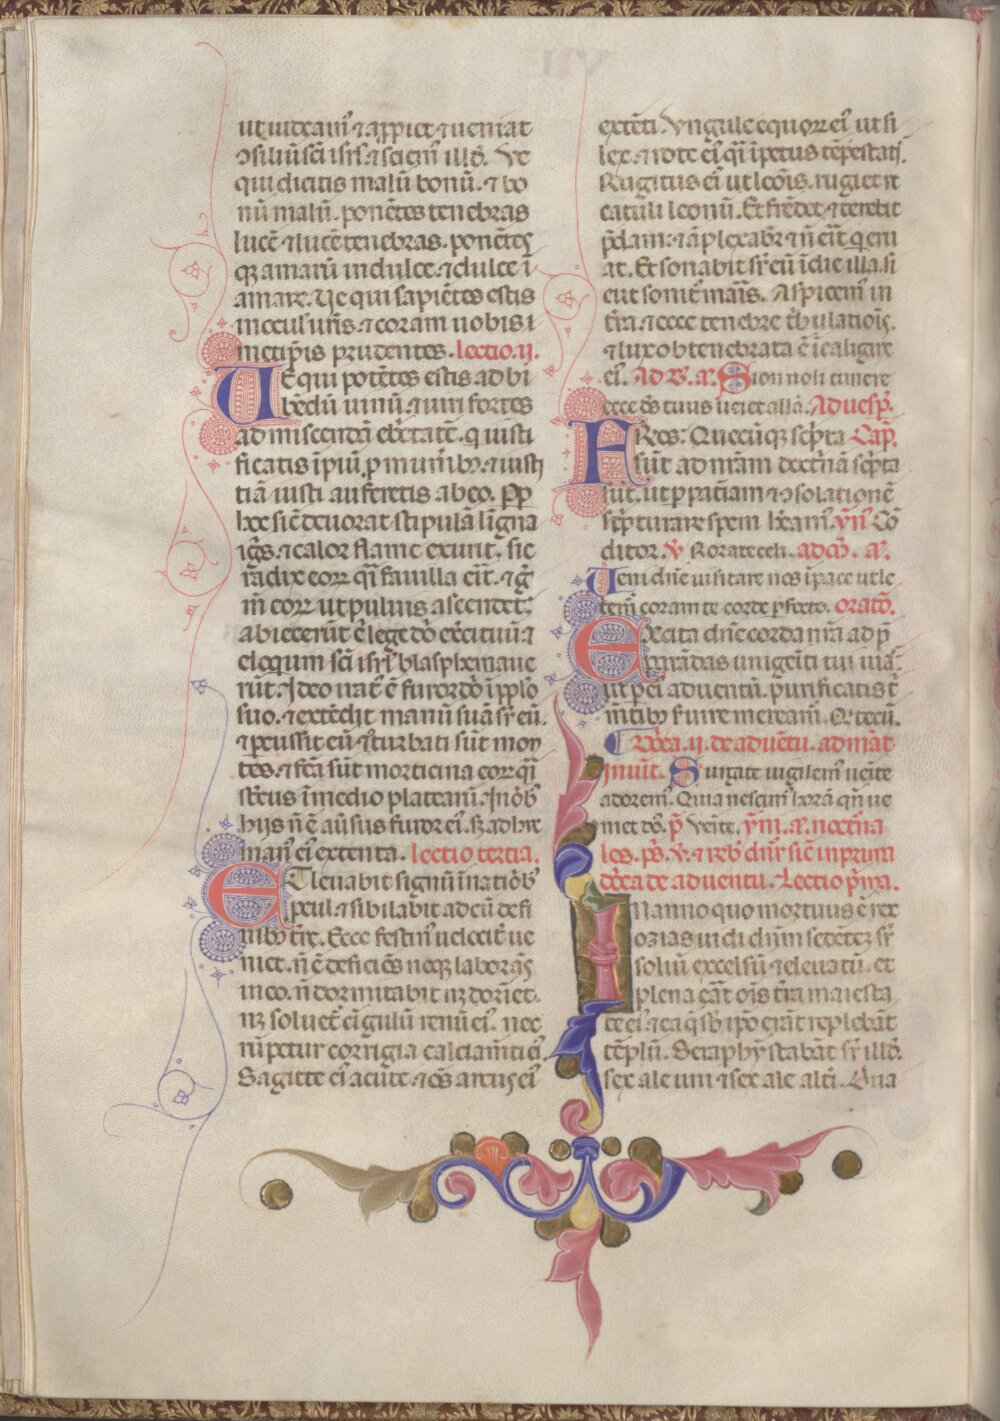 ut uideam᷒ ⁊ apꝓpiet ⁊ ueniat
ↄsiliũ sc̃i isrl̃ ⁊ sciem᷒ illđ. Ve
qui dicitis malũ bonũ. ⁊ bo
nũ malũ. ponẽtes tenebras
lucẽ ⁊ lucẽ tenebras. ponẽtes
amarũ in dulce. ⁊ dulce ĩ
amarũ. Ue qui sapiẽtes estis
in ocul᷒ ur̃is. ⁊ coram uobis i
metip̃is prudentes. lectio .ij.
UE qui potẽtes estis ad bi
bẽdũ uinũ. ⁊ uiri fortes
ad miscendã eb̾etatẽ. q̇ iusti
ficatis ĩpiũ ꝓ mun̾ib᷒. ⁊ iusti
tiã iusti aufertis ab eo. Pꝓp
hoc sic̃ deuorat stipulã lĩgua
igĩs. ⁊ calor flame exurit. sic
radix eoꝝ q̃i fauilla ẽit. ⁊ g̾
m̃ eoꝝ ut puluis ascendet.
abiecerũt ẽ legẽ dñi ex̾cituũ. ⁊
eloquium sc̃i isrl̃ blasphemaue
rũt. Ideo irat᷒ ẽ furor dñi ĩ pplo
suo. ⁊ extẽdit manũ suã sr̃ eũ.
⁊ percussit eũ ⁊ ↄturbati sũt mon
tes. ⁊ fc̃a sũt morticina eoꝝ q̃i
st̾cus ĩ medio platearũ. In oĩb᷒
hijs ñ ẽ au̾sus furor ei᷒. sꝫ adhuc
man᷒ ei᷒ extenta. lectio tertia.
ET leuabit signũ ĩ natiõib᷒
ꝓcul. ⁊ sibilabit ad eũ de fi
nib᷒ t̾re. Ecce festin᷒ uelocit̾ ue
niet. ñ ẽ deficiẽs neqꝫ laborãs
in eo. ñ dormitabit nꝫ dorm̃iet.
nꝫ soluet᷑ cĩgulũ renũ ei᷒. nec
rũpetur corrigia calciam̃ti ei᷒.
Sagitte ei᷒ acute. ⁊ oẽs arcus ei᷒
extẽti. Vngule equoꝝ ei᷒ ut si
lex. ⁊ rote ei᷒ q̃i ĩpetus tẽpestatis.
Rugitus ei᷒ ut leoĩs. rugiet ut
catuli leonũ. Et frẽdet ⁊ tenebit
p̃dam: ⁊ ãplexabit᷑ ⁊ ñ erit q̇ eru
at. Et sonabit sr̃ eũ ĩ die illa. si
cut sonit᷒ maris. Aspiciem᷒ in
t̾ra. ⁊ ecce tenebre t̾bulatiõis.
⁊ lux obtenebrata ẽ ĩ caligine
ei᷒. Ad B̃. a᷒. Sion noli timere
ecce de᷒s tuus ueiet alla. Ad uesp̾.
FRes: Quecũqꝫ sc̾pta Cap̃.
sũt ad nr̃am doctr̃inã sc̾pta
sũt. ut ꝑ patiam ⁊ ↄsolationẽ
sc̾pturarꝫ spem heam᷒. ymñ. Cõ
ditor. ꝟ Rorate celi. ad m̃. a᷒.
Ueni dñe uisitare nos ĩ pace ut le
tem᷒ coram te corde ꝑfecto. oratõ.
Excita dñe corda nr̃a ad p̃
parãdas unigeĩti tui uias.
ut ꝑ ei᷒ aduentũ. purificatis t̾
mẽtib᷒ s̾uire meream᷒. Q̇ tecũ.
Dñica .ij. de aduẽtu. ad mat̾
inuit̾. Surgite uigilem᷒ ueite
adorem᷒. Quia nescim᷒ horã qñ ue
niet dñs. p̃s Veĩte. ym̃. a᷒. noct̾na
les. ps̃. ꝟ. ⁊ reb᷒ dñr sic̃ in prima
dñica de aduentu. Lectio p̾ma.
IN anno quo mortuus ẽ rex
ozias uidi dñm sedẽteꝫ sr̃
soliũ excelsũ ⁊ eleuatũ. et
plena erat oĩs t̾ra maiesta
te ei᷒. ⁊ ea q̃ sb᷒ ip̃o erãt replebãt
tẽplũ. Seraphyñ stabãt sr̃ illđ.
sex ale uni ⁊ sex ale alt̾i. Dua